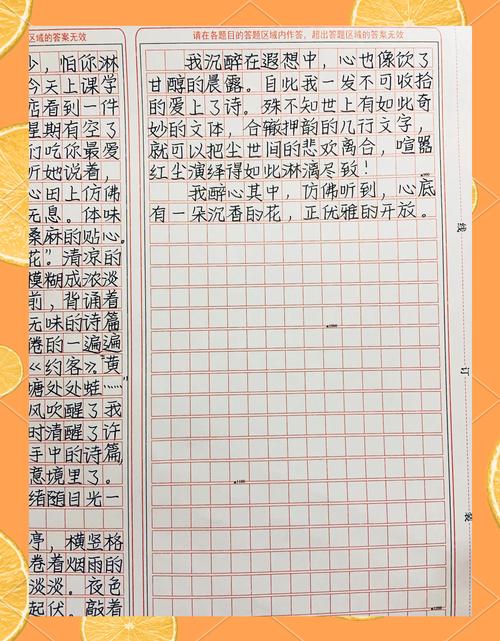 区域的答案无效
少，怕你淋
今天上课学
店看到一件
星期有空了
们吃你最爱
听她说着，
心田上仿佛
无息。体味
桑麻的贴心。
花”清凉的
模糊成浓淡
前，背诵着
无味的诗篇
卷的一遍遍
《约客》。黄
塘处处蛙……”
风吹醒了我
时清醒了许
手中的诗篇，
意境里了。
绪随目光一
亭，横竖格
卷着烟雨的
淡淡。夜色
起伏。敲着
请在各题目的答题区域内作答，超出答题区域的答案无效
我沉醉在遐想中，心也像饮了
甘醇的晨露。自此我一发不可收拾
的爱上了诗。殊不知世上有如此奇
妙的文体，合辙押韵的几行文字，
就可以把尘世间的悲欢离合，喧嚣
红尘演绎得如此淋漓尽致！
我醉心其中，仿佛听到，心底
有一朵沉香的花，正优雅的开放。
线
订
装